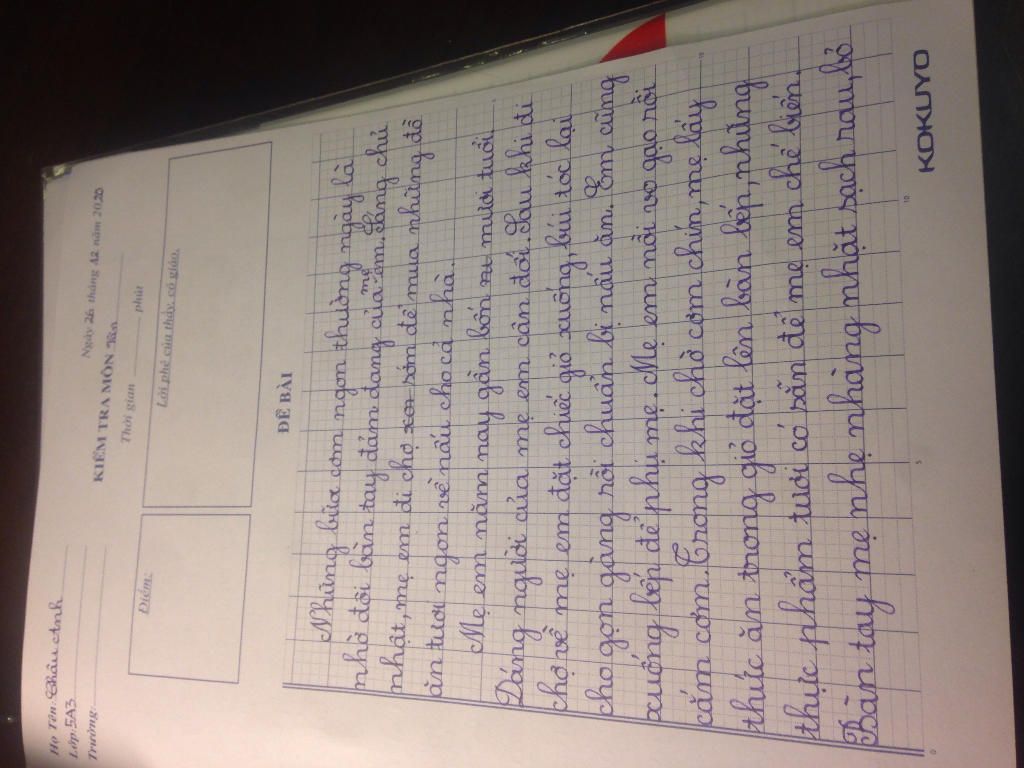 Họ Tên: Châu Anh
Lớp: 5A3
Trường:
Ngày 26 tháng 12 năm 2020
KIỂM TRA MÔN
Thời gian phút
Điểm:
Lời phê của thầy, cô giáo.
ĐỀ BÀI
Những bữa cơm ngon thường ngày là
nhờ đôi bàn tay đảm đang của mẹ em. Sáng chủ
nhật, mẹ em đi chợ sớm để mua những đồ
ăn tươi ngon về nấu cho cả nhà.
Mẹ em năm nay gần bốn mươi tuổi.
Dáng người của mẹ em cân đối. Sau khi đi
chợ về mẹ em đặt chiếc giỏ xuống, búi tóc lại
cho gọn gàng rồi chuẩn bị nấu ăn. Em cũng
xuống bếp để phụ mẹ. Mẹ em nồi vo gạo rồi
cắm cơm. Trong khi chờ cơm chín, mẹ lấy
thức ăn trong giỏ đặt lên bàn bếp, những
thực phẩm tươi có sẵn để mẹ em chế biến.
Bàn tay mẹ nhẹ nhàng nhặt sạch rau, bỏ
0
5
10
15
KOKUYO